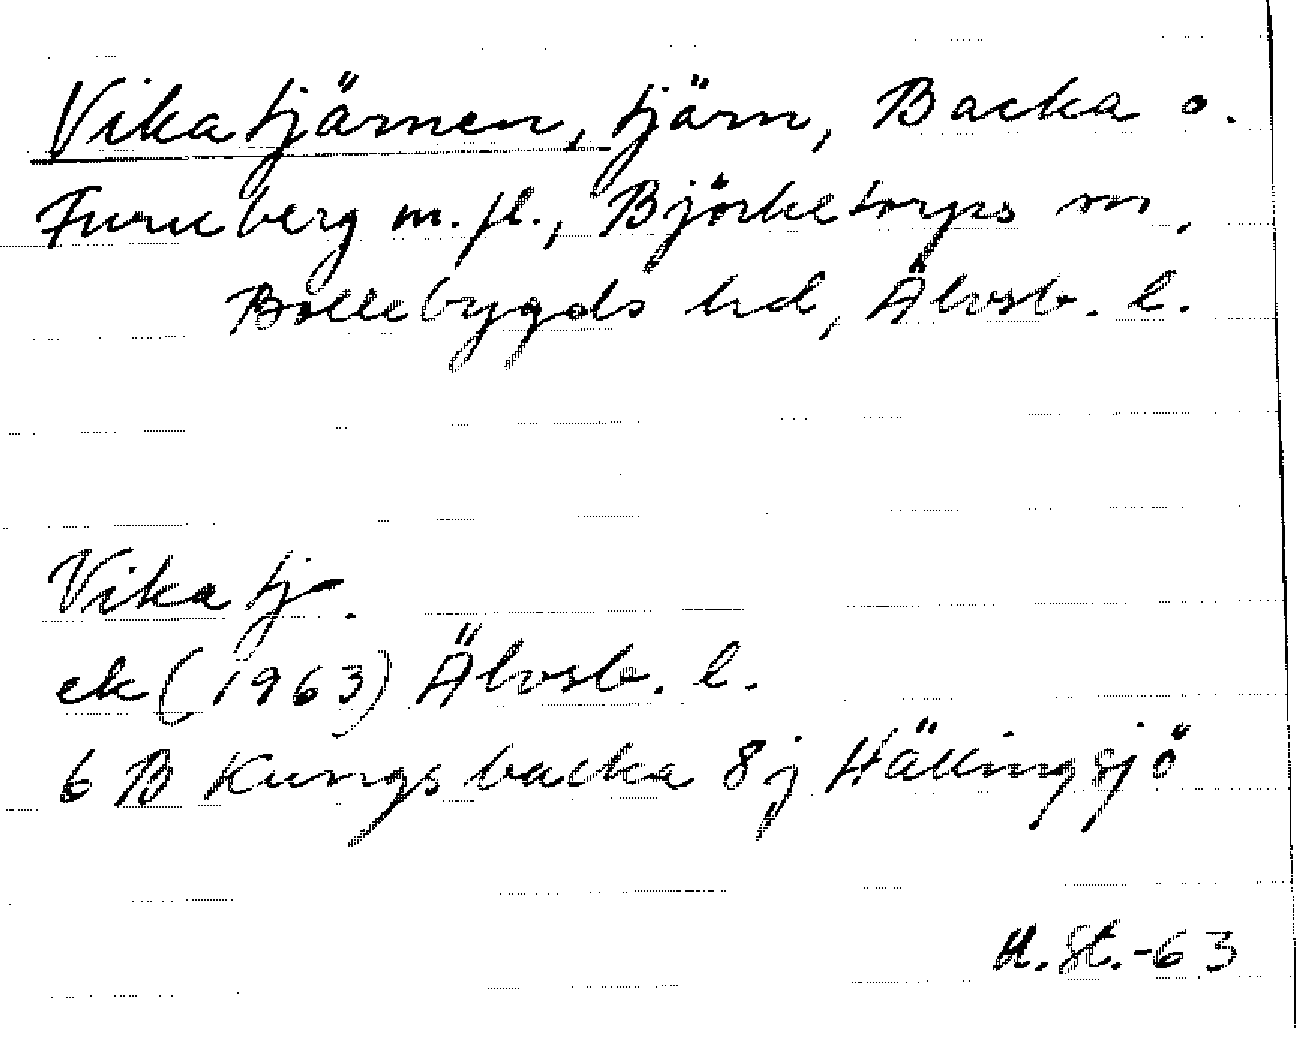 Vikatjärnen, tjärn, Backa o.
Furuberg m.fl., Björketorps sn,
Bollebygds hd, Älvsb. l.
Vikatj.
ek (1963) Älvsb. l.
6 B Kungsbacka 8j Hällingsjö
H. St.-63